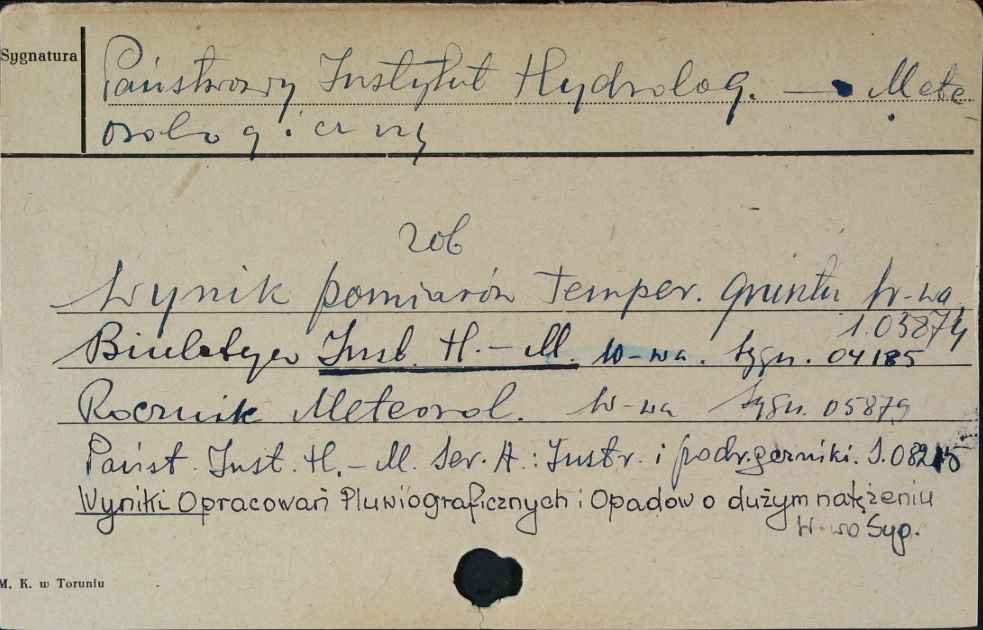 Sygnatura
Państwowy Instytut Hydrolog. — Mete
orologiczny
zob
Wynik pomiarów Temper. gruntu W-wa
S.05874
Biuletyn Inst. H. - M. W-wa. Sygn. 04185
Rocznik Meteorol. W-wa Sygn. 05879
Państ. Inst. H. - M. Ser. A.: Instr. i podr.czniki. S. 08215
Wyniki Opracowań Pluwiograficznych i Opadów o dużym natężeniu
W-wa Syg.
M. K. w Toruniu